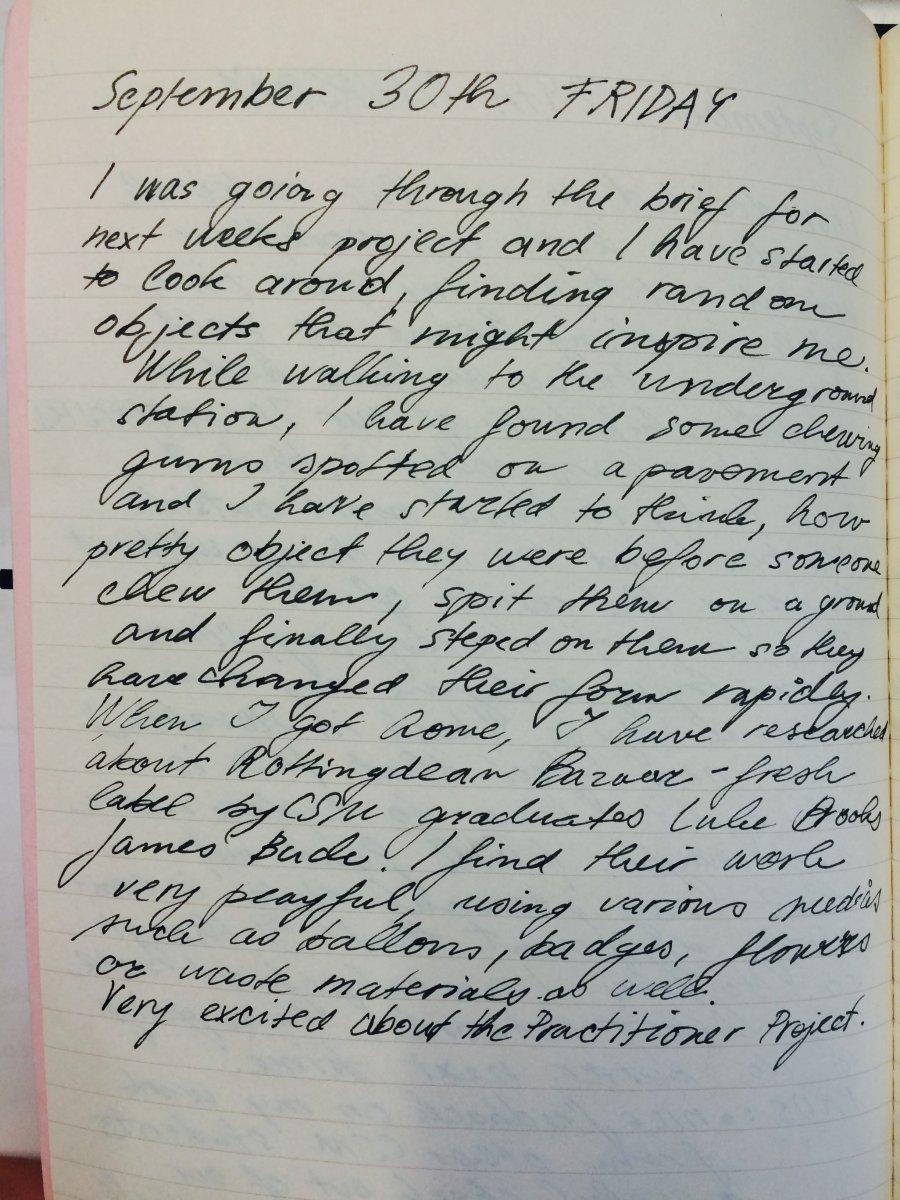 September 30th FRIDAY
I was going through the brief for
next weeks project and I have started
to look aroud, finding random
objects that might inspire me.
While walking to the underground
station, I have found some chewing
gums spotted on a pavement
and I have started to think, how
pretty object they were before someone
chew them, spit them on a ground
and finally steped on them so they
have changed their form rapidly.
When I got home, I have researched
about Rottingdean Bazaar - fresh
label by CSM graduates Luke Brooks
James Buck. I find their work
very peayful, using various medias
such as ballons, badges, flowers
or waste materials as well.
Very excited about the Practitioner Project.